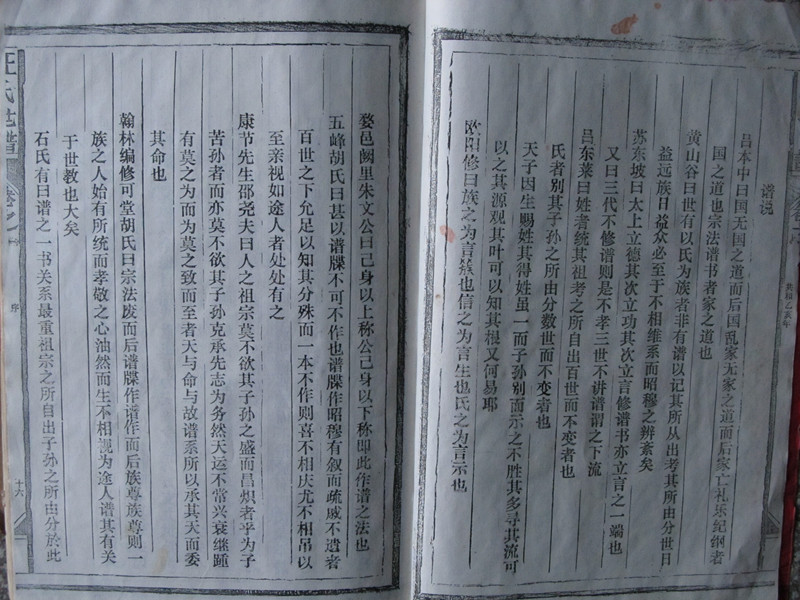 谱说
吕本中曰国无国之道而后国乱家无家之道而后家亡礼乐纪纲者
国之道也宗法谱书者家之道也
黄山谷曰世有以氏为族者非有谱以记其所从出考其所由分世日
益远族日益众必至于不相维系而昭穆之辨紊矣
苏东坡曰太上立德其次立功其次立言修谱书亦立言之一端也
又曰三代不修谱则是不孝三世不讲谱谓之下流
吕东莱曰姓者统其祖考之所自出百世而不变者也
氏者别其子孙之所由分数世而不变者也
天子因生赐姓其得姓虽一而子孙别而示之不胜其多寻其流可
以之其源观其叶可以知其根又何易耶
欧阳修曰族之为言簇也信之为言生也氏之为言示也
婺邑阙里朱文公曰己身以上称公己身以下称即此作谱之法也
五峰胡氏曰甚以谱牒不可不作也谱牒作昭穆有叙而疏戚不遗者
百世之下允足以知其分殊而一本不作则喜不相庆尤不相吊以
至亲视如途人者处处有之
康节先生邵尧夫曰人之祖宗莫不欲其子孙之盛而昌炽者乎为子
苦孙者而亦莫不欲其子孙克承先志为务然天运不常兴衰继踵
有莫之为而为莫之致而至者天与命与故谱系所以承其天而委
其命也
翰林编修可堂胡氏曰宗法废而后谱牒作谱作而后族尊族尊则一
族之人始有所统而孝敬之心油然而生不相视为途人谱其有关
于世教也大矣
石氏有曰谱之一书关系最重祖宗之所自出子孙之所由分於此
汪氏世谱
卷之一
序
十六
共和乙亥年